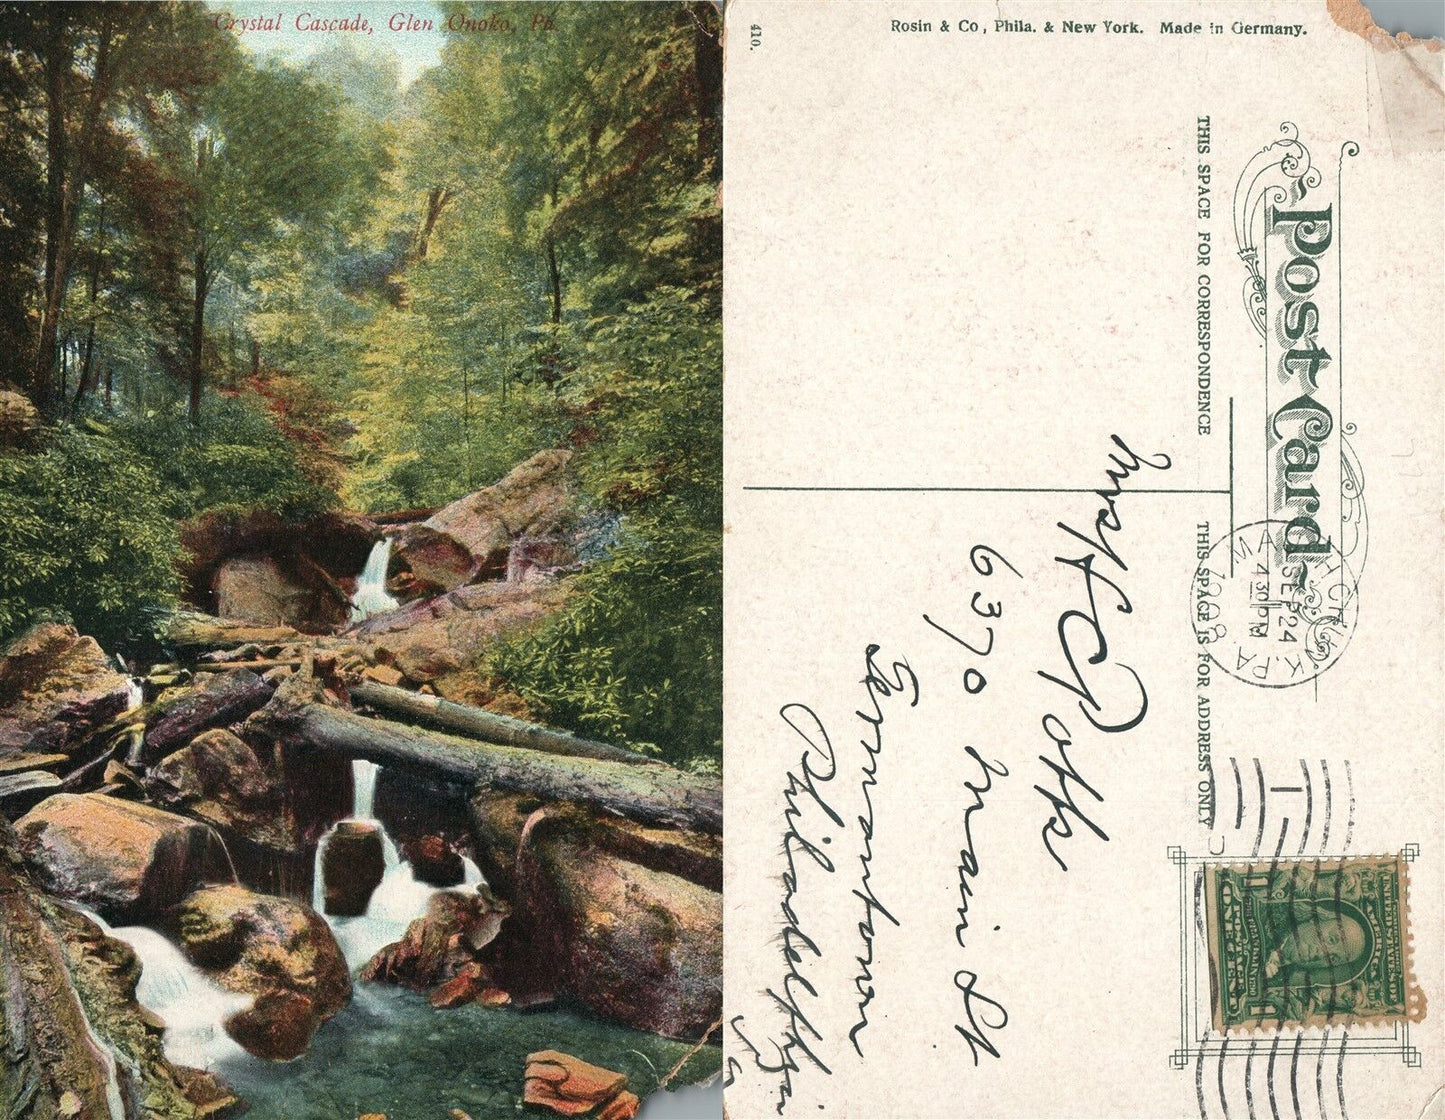 Crystal Cascade, Glen Onoko, Pa.
410.
Rosin & Co, Phila. & New York. Made in Germany.
Post Card
THIS SPACE FOR CORRESPONDENCE
THIS SPACE IS FOR ADDRESS ONLY
MAUCH CHUNK, PA.
SEP 24
430 PM
1908
1
6370 Main St
Germantown
Philadelphia
Pa